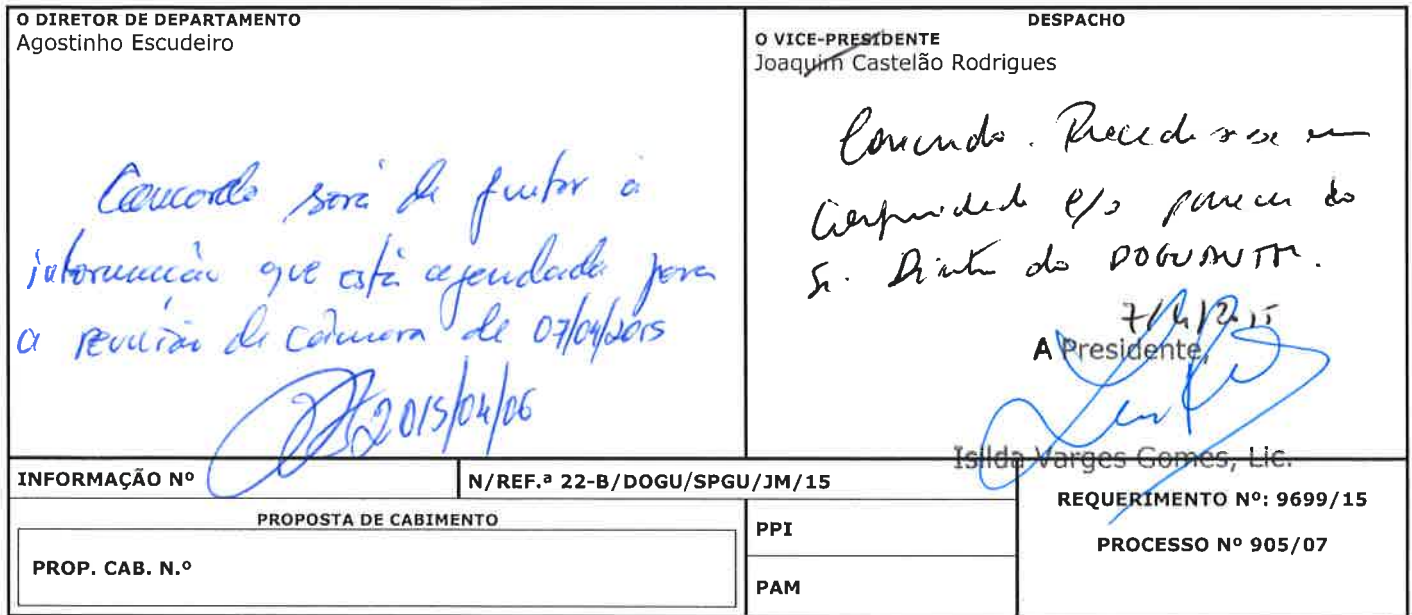 O DIRETOR DE DEPARTAMENTO
Agostinho Escudeiro
Concordo será de juntar à
informação que está agendada para
a reunião de câmara de 07/04/2015
2015/04/06
DESPACHO
O VICE-PRESIDENTE
Joaquim Castelão Rodrigues
Concordo. Proceda-se em
conformidade c/o parecer do
Sr. Diretor do
7/4/2015
A Presidente,
Isilda Varges Gomes, Lic.
INFORMAÇÃO Nº
N/REF.ª 22-B/DOGU/SPGU/JM/15
REQUERIMENTO Nº: 9699/15
PROCESSO Nº 905/07
PROPOSTA DE CABIMENTO
PROP. CAB. N.º
PPI
PAM